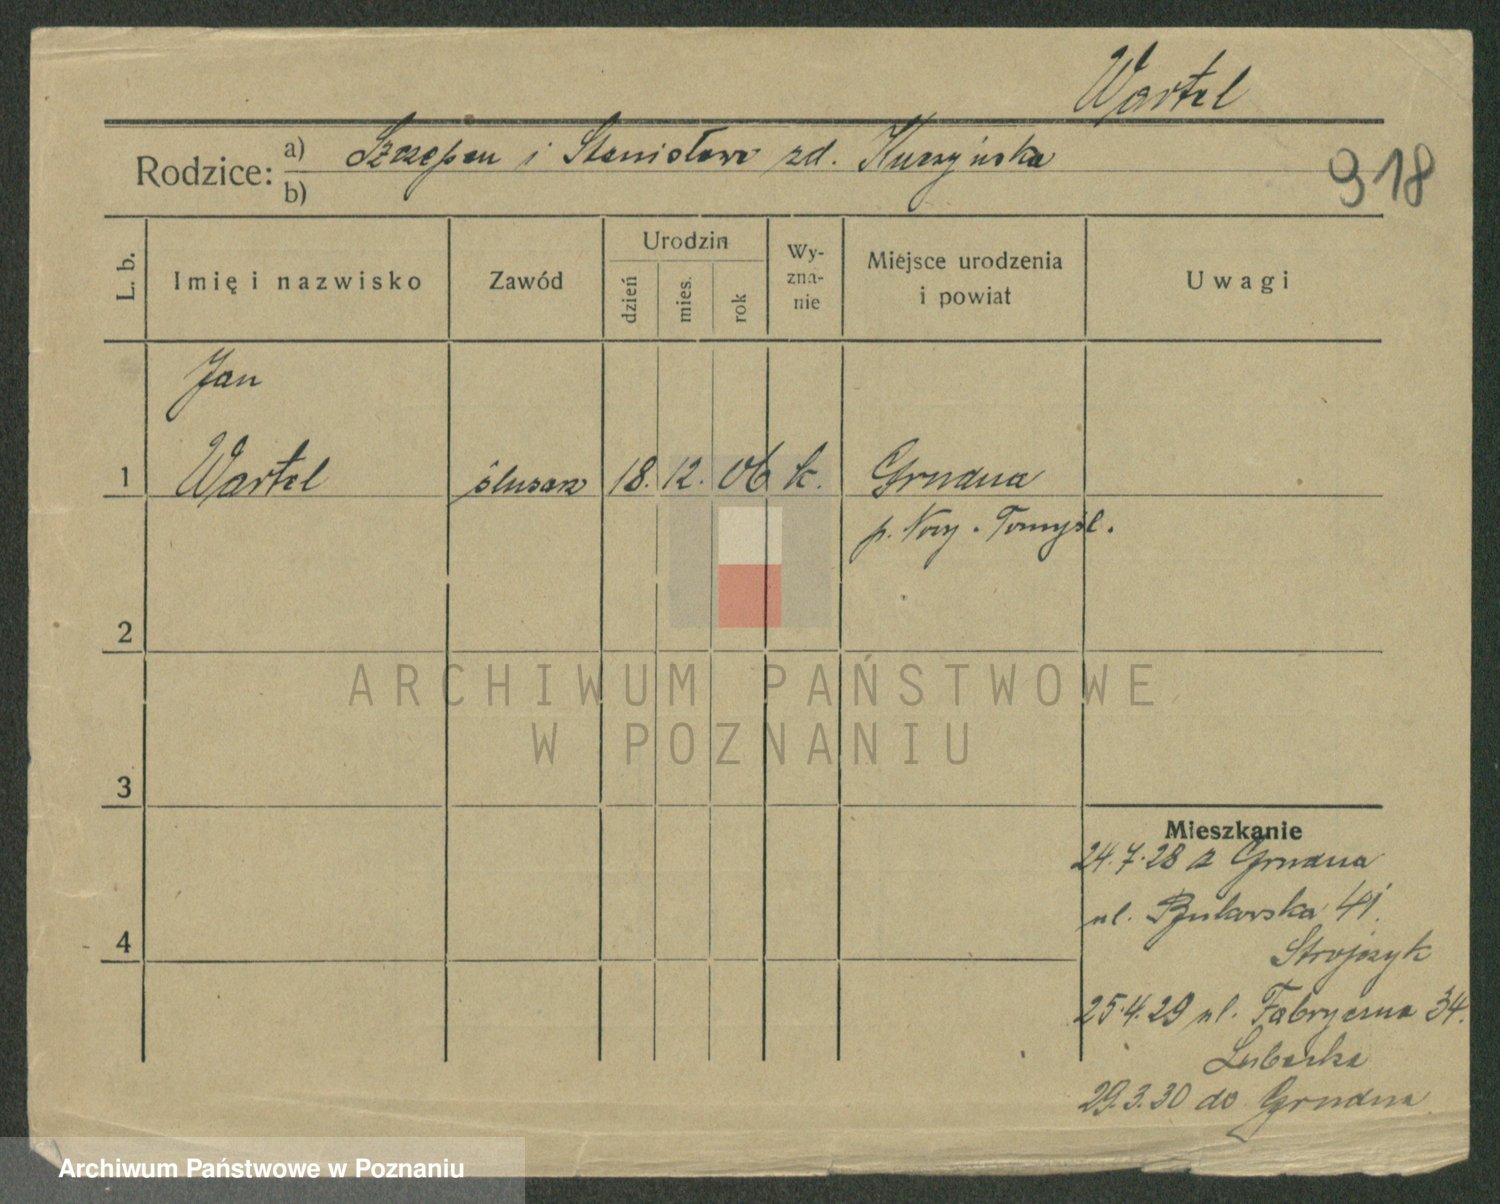 Wartel
Rodzice: a) Szczepan i Stanisława zd. Kurzyńska
b)
918
L. b.
Imię i nazwisko
Zawód
Urodzin
dzień
mies.
rok
Wy-
zna-
nie
Miejsce urodzenia
i powiat
Uwagi
Jan
1 Wartel ślusarz 18. 12. 06 k. Grudna
p. Nowy-Tomyśl.
2
ARCHIWUM PAŃSTWOWE
W POZNANIU
3
Mieszkanie
24.7.28 z Grudna
ul. Bukowska 41.
4
Strojczyk
25.4.29 ul. Fabryczna 34.
29.3.30 do Grudna
Archiwum Państwowe w Poznaniu